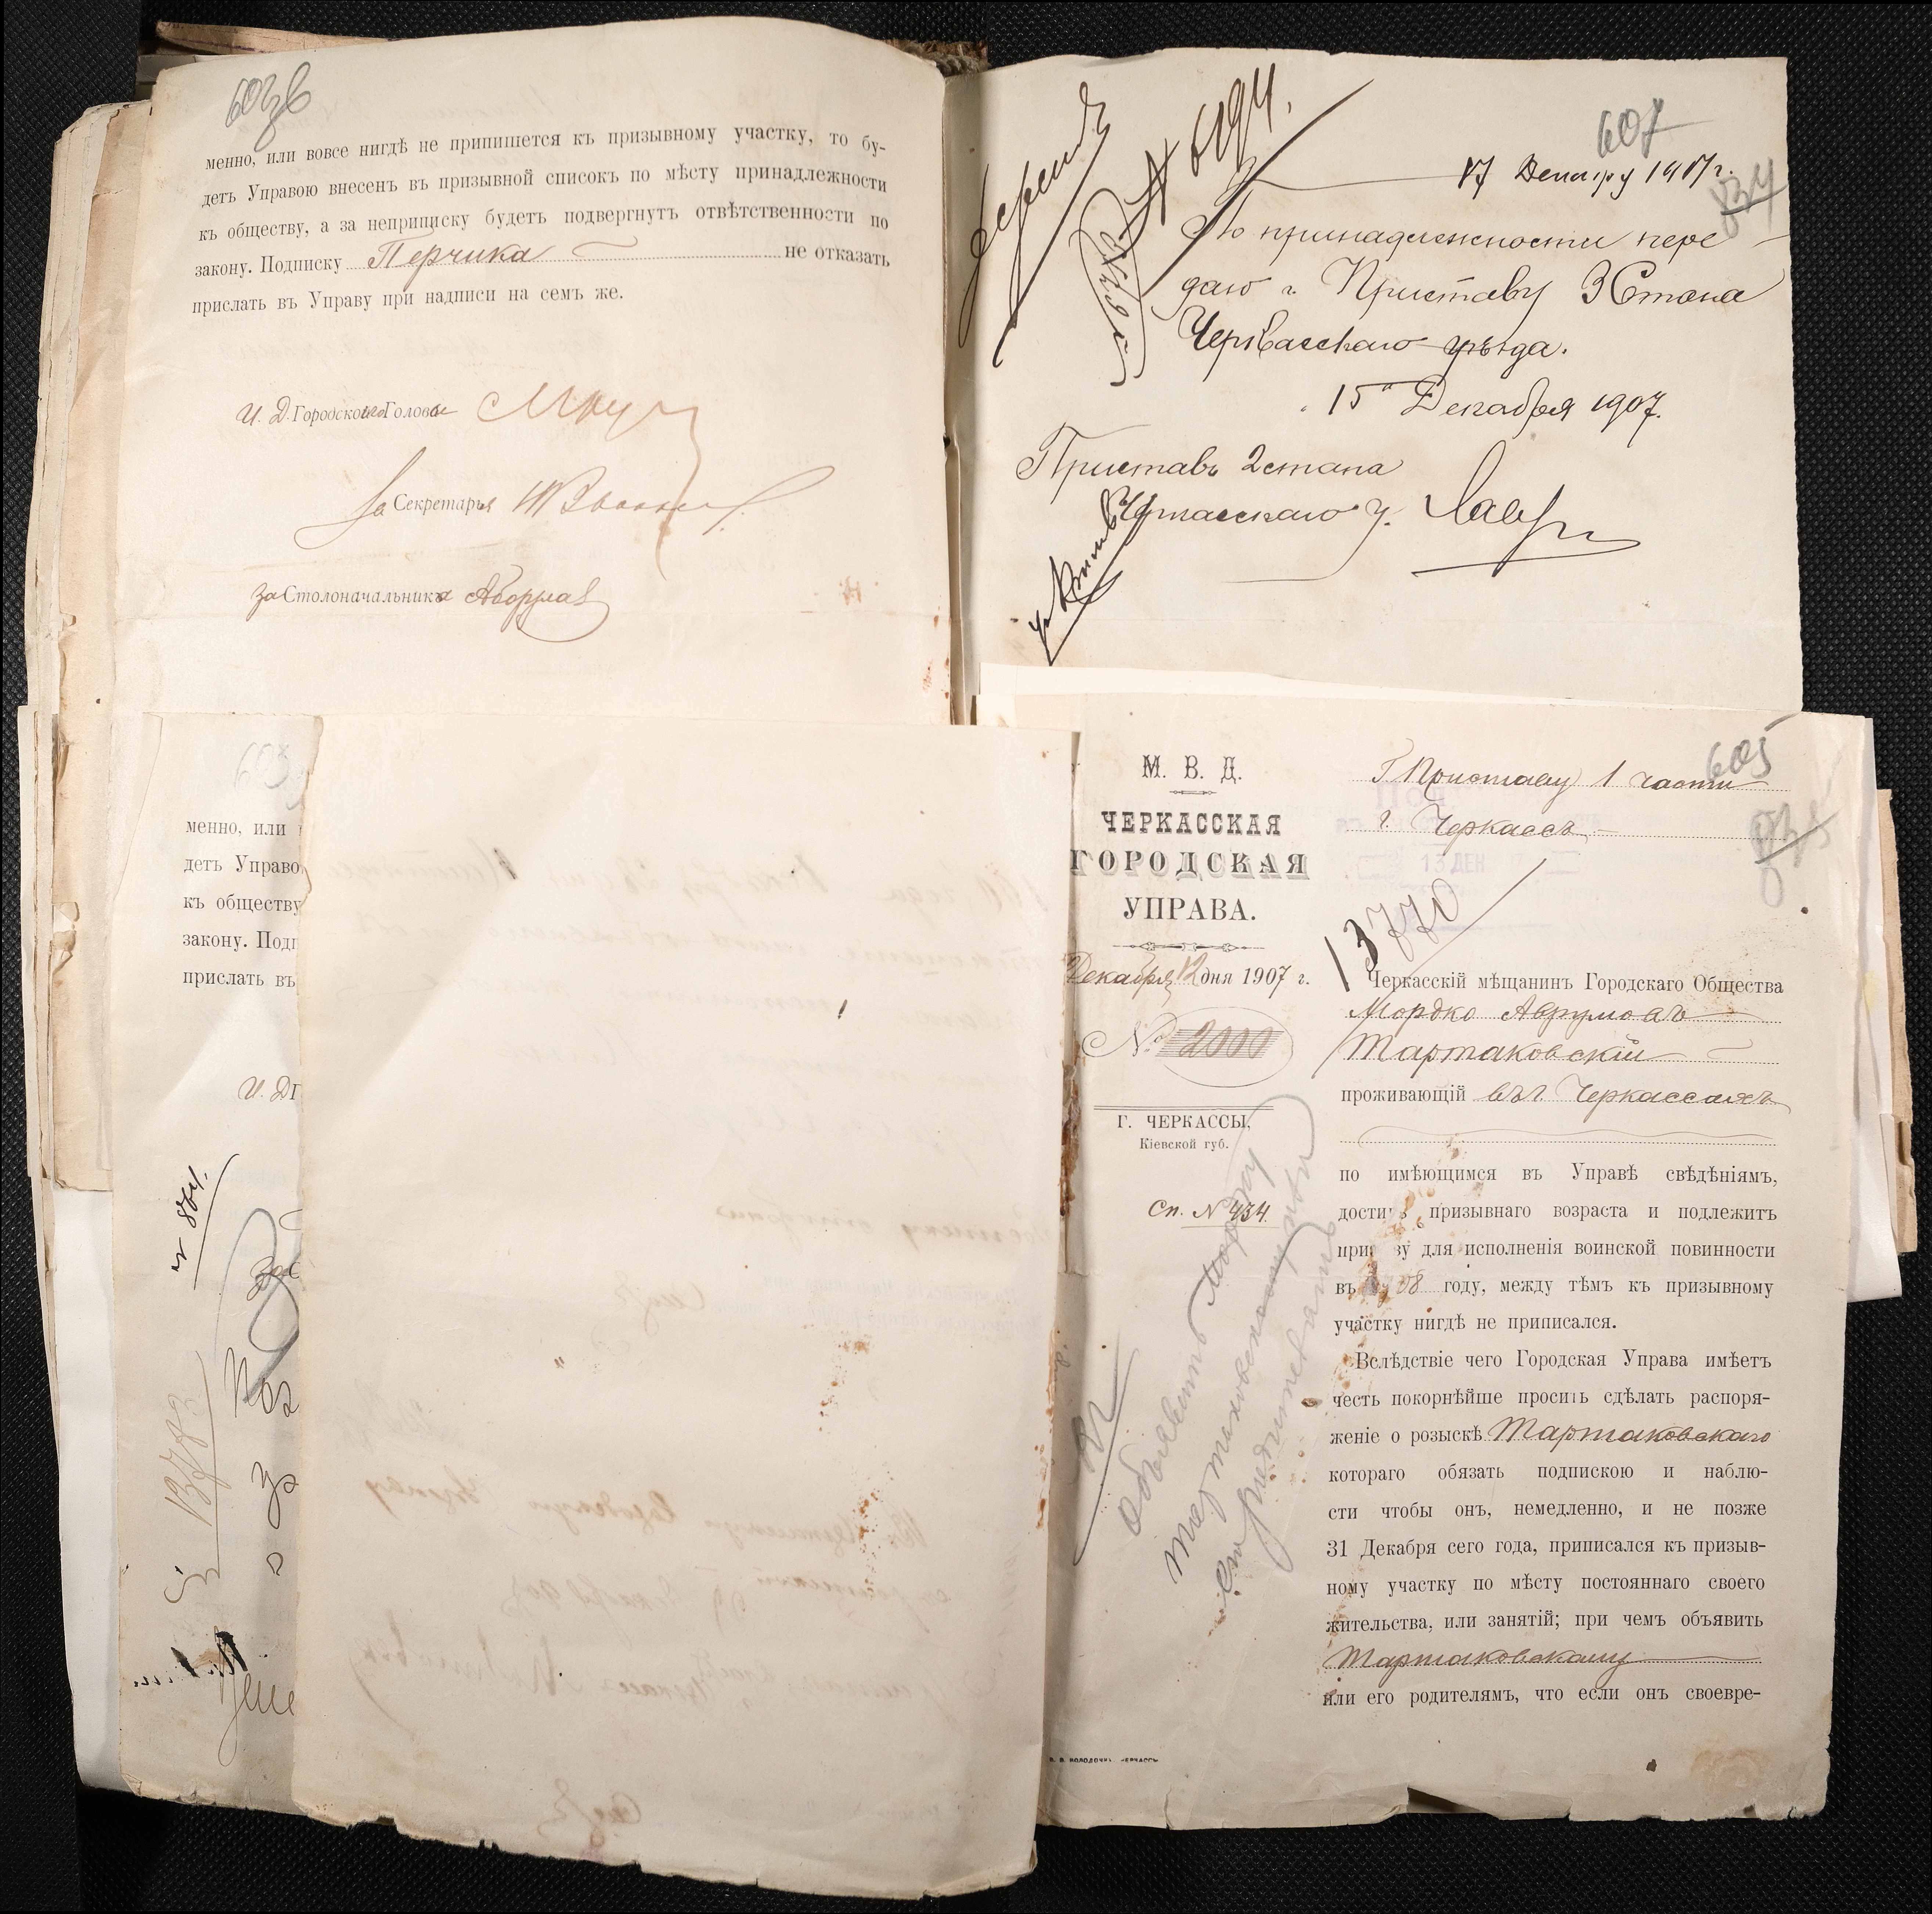 менно, или вовсе нигдѣ не припишется къ призывному участку, то бу-
детъ Управою внесенъ въ призывной списокъ по мѣсту принадлежности
къ обществу, а за неприписку будетъ подвергнутъ отвѣтственности по
закону. Подписку Перчика не отказать
прислать въ Управу при надписи на семъ же.
И. Д. Городского Головы
За Секретаря
За Столоначальника
607
17 Декабря 1907 г.
По принадлежности пере-
даю г. Приставу 3 Стана
Черкасскаго уѣзда.
15 Декабря 1907.
Приставъ 2 стана
Черкасскаго у.
менно, или
детъ Управо
къ обществу
закону. Подп
прислать въ
И. Д. Г
№ 864.
М. В. Д.
ЧЕРКАССКАЯ
ГОРОДСКАЯ
УПРАВА.
Декабря 12 дня 1907 г.
№ 2000
Г. ЧЕРКАССЫ,
Кіевской губ.
Сп. № 434
605
Г Приставу 1 части
г. Черкассъ
13 ДЕК
13770
Черкасскій мѣщанинъ Городскаго Общества
Мордко Аврумовъ
Тартаковскій
проживающій въ г. Черкассахъ
по имѣющимся въ Управѣ свѣдѣніямъ,
достигъ призывнаго возраста и подлежитъ
призыву для исполненія воинской повинности
въ 1908 году, между тѣмъ къ призывному
участку нигдѣ не приписался.
Вслѣдствіе чего Городская Управа имѣетъ
честь покорнѣйше просить сдѣлать распоря-
женіе о розыскѣ Тартаковскаго
котораго обязать подпискою и наблю-
сти чтобы онъ, немедленно, и не позже
31 Декабря сего года, приписался къ призыв-
ному участку по мѣсту постояннаго своего
жительства, или занятій; при чемъ объявить
Тартаковскому
или его родителямъ, что если онъ своевре-
Объявить Мордку
Тартаковскому